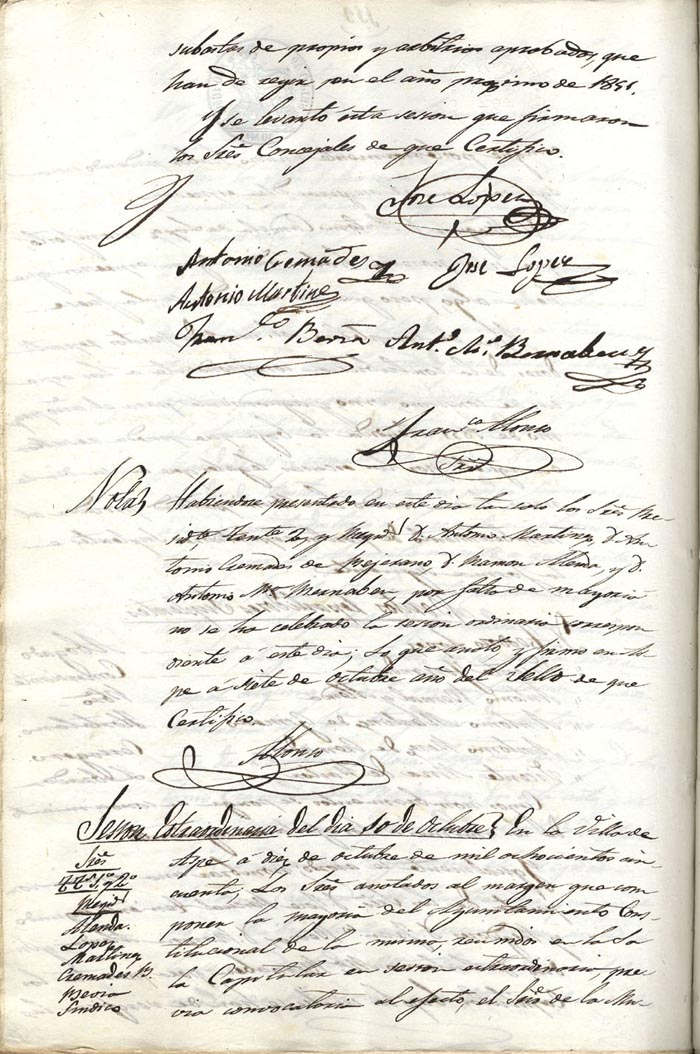 subastas de propios y arbitrios aprobados, que
han de regir en el año proximo de 1851.
Y se levantó esta sesion que firmaron
los Sres Concejales de que Certifico.
Jose Lopez
Antonio Cremades Jose Lopez
Antonio Martinez
Franco Beviá Anto Ma Bernabeu
Franco Alonso
Srio
Nota
Habiendose presentado en este dia tan solo los Sres Pre
sidte, tente 2º, y Regs D. Antonio Martinez, D. An
tonio Cremades de Bejerano, D. Ramon Alenda, y D.
Antonio Ma Bernabeu, por falta de mayoria
no se ha celebrado la sesion ordinaria correspon
diente á este dia; Lo que anoto, y firmo en As
pe á siete de octubre año del Sello de que
Certifico.
Alonso
Sesion Extraordinaria del dia 10 de Octubre
En la Villa de
Aspe á diez de octubre de mil ochocientos cin
cuenta; Los Sres anotados al margen que com
ponen la mayoria del Ayuntamiento Cons
titucional de la misma, reunidos en la Sa
la Capitular en sesion extraordinaria, pre
via convocatoria al efecto, el Sr de la Mu
Sres
TTes 1º y 2º
Regs
Alenda.
Lopez
Martinez
Cremades B.
Bevia
Sindico